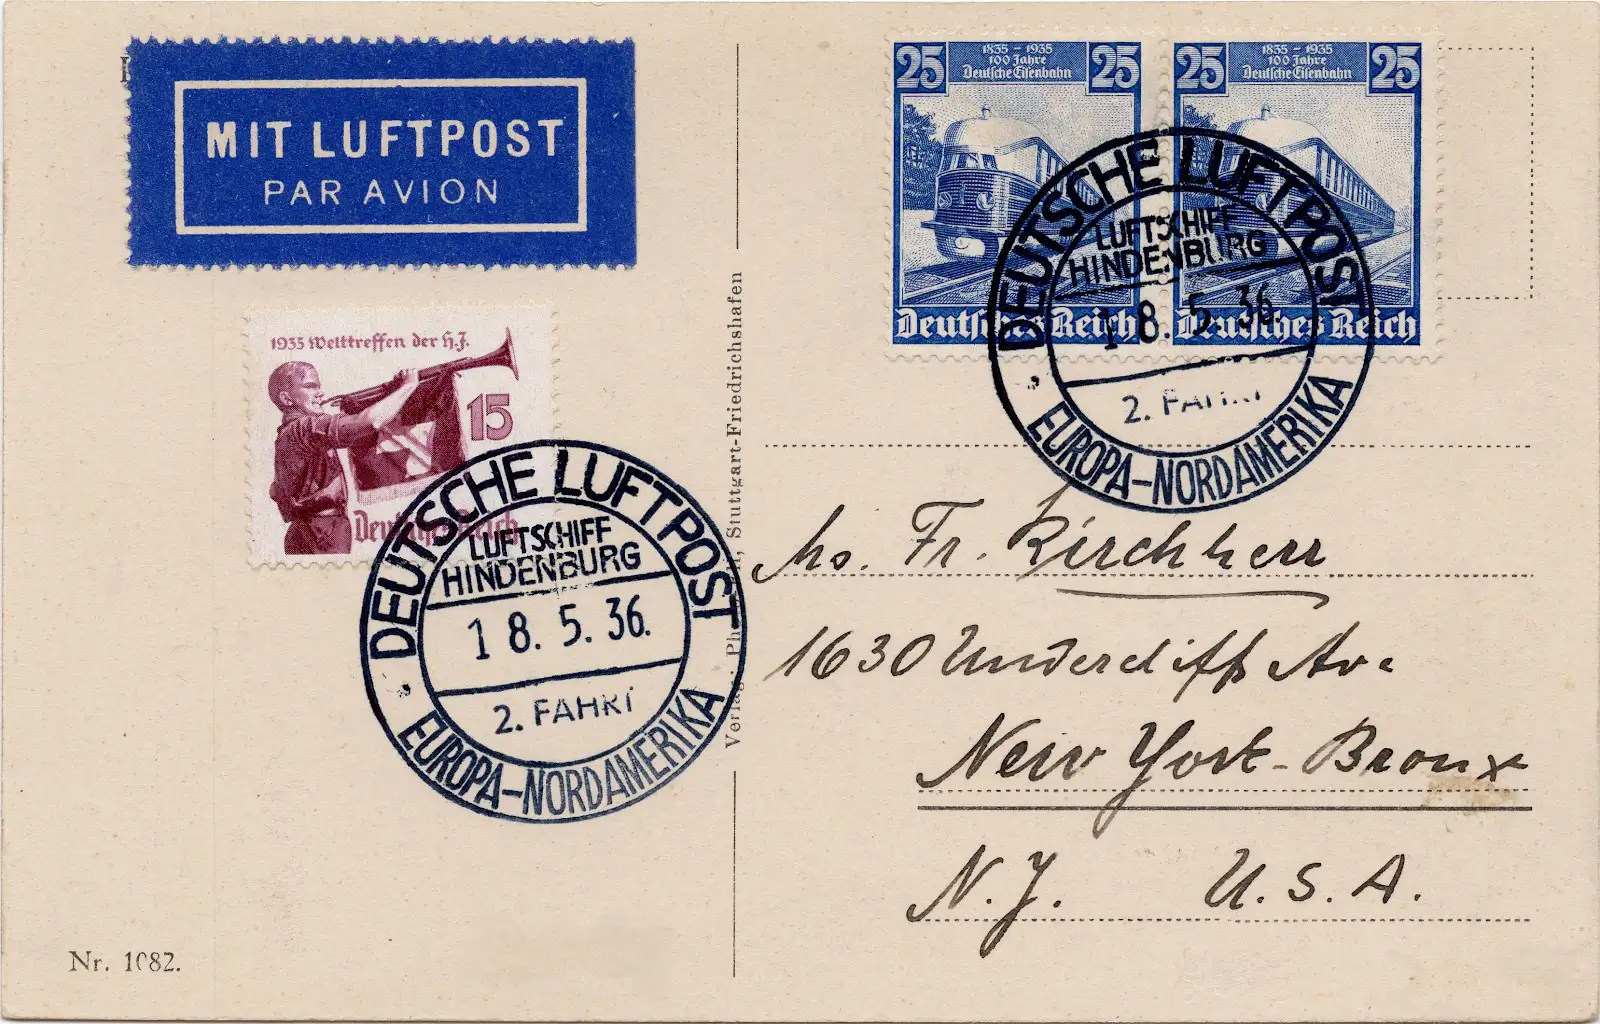 MIT LUFTPOST
PAR AVION
25 1835 – 1935 25
100 Jahre
Deutsche Eisenbahn
Deutsches Reich
25 1835 – 1935 25
100 Jahre
Deutsche Eisenbahn
Deutsches Reich
DEUTSCHE LUFTPOST
LUFTSCHIFF
HINDENBURG
18.5.36.
2. FAHRT
EUROPA–NORDAMERIKA
1935 Welttreffen der H.J.
15
Deutsches Reich
DEUTSCHE LUFTPOST
LUFTSCHIFF
HINDENBURG
18.5.36.
2. FAHRT
EUROPA–NORDAMERIKA
Verlag Stuttgart-Friedrichshafen
Fr. Kirchherr
1630 Undercliff Av.
New York - Bronx
N.Y. U.S.A.
Nr. 1082.